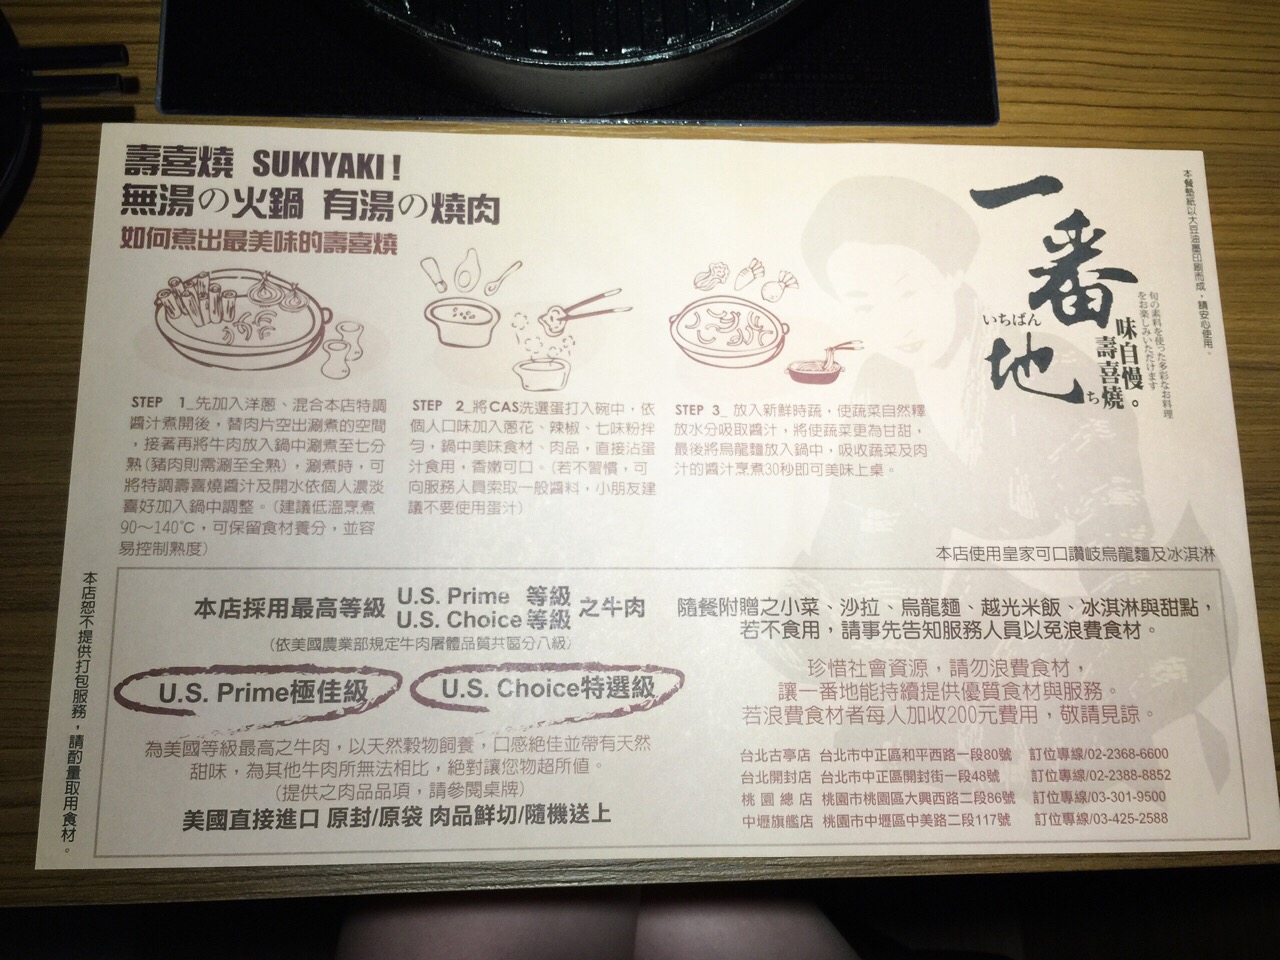 壽喜燒 SUKIYAKI！
無湯の火鍋 有湯の燒肉
如何煮出最美味的壽喜燒
STEP 1_先加入洋蔥、混合本店特調
醬汁煮開後，替肉片空出涮煮的空間
，接著再將牛肉放入鍋中涮煮至七分
熟(豬肉則需涮至全熟)，涮煮時，可
將特調壽喜燒醬汁及開水依個人濃淡
喜好加入鍋中調整。(建議低溫烹煮
90～140℃，可保留食材養分，並容
易控制熟度)
STEP 2_將CAS洗選蛋打入碗中，依
個人口味加入蔥花、辣椒、七味粉拌
勻，鍋中美味食材、肉品，直接沾蛋
汁食用，香嫩可口。(若不習慣，可
向服務人員索取一般醬料，小朋友建
議不要使用蛋汁)
STEP 3_ 放入新鮮時蔬，使蔬菜自然釋
放水分吸取醬汁，將使蔬菜更為甘甜，
最後將烏龍麵放入鍋中，吸收蔬菜及肉
汁的醬汁烹煮30秒即可美味上桌。
一番地
いちばん
ち
味自慢。
壽喜燒
旬の素料を使った多彩なお料理
をお楽しみいただけます
本餐墊紙以大豆油墨印刷而成，請安心使用。
本店使用皇家可口讚岐烏龍麵及冰淇淋
本店恕不提供打包服務，請酌量取用食材。
本店採用最高等級 U.S. Prime 等級 之牛肉
U.S. Choice 等級
(依美國農業部規定牛肉屠體品質共區分八級)
U.S. Prime極佳級
U.S. Choice特選級
為美國等級最高之牛肉，以天然穀物飼養，口感絕佳並帶有天然
甜味，為其他牛肉所無法相比，絕對讓您物超所值。
(提供之肉品品項，請參閱桌牌)
美國直接進口 原封/原袋 肉品鮮切/隨機送上
隨餐附贈之小菜、沙拉、烏龍麵、越光米飯、冰淇淋與甜點，
若不食用，請事先告知服務人員以免浪費食材。
珍惜社會資源，請勿浪費食材，
讓一番地能持續提供優質食材與服務。
若浪費食材者每人加收200元費用，敬請見諒。
台北古亭店 台北市中正區和平西路一段80號 訂位專線/02-2368-6600
台北開封店 台北市中正區開封街一段48號 訂位專線/02-2388-8852
桃園總店 桃園市桃園區大興西路二段86號 訂位專線/03-301-9500
中壢旗艦店 桃園市中壢區中美路二段117號 訂位專線/03-425-2588